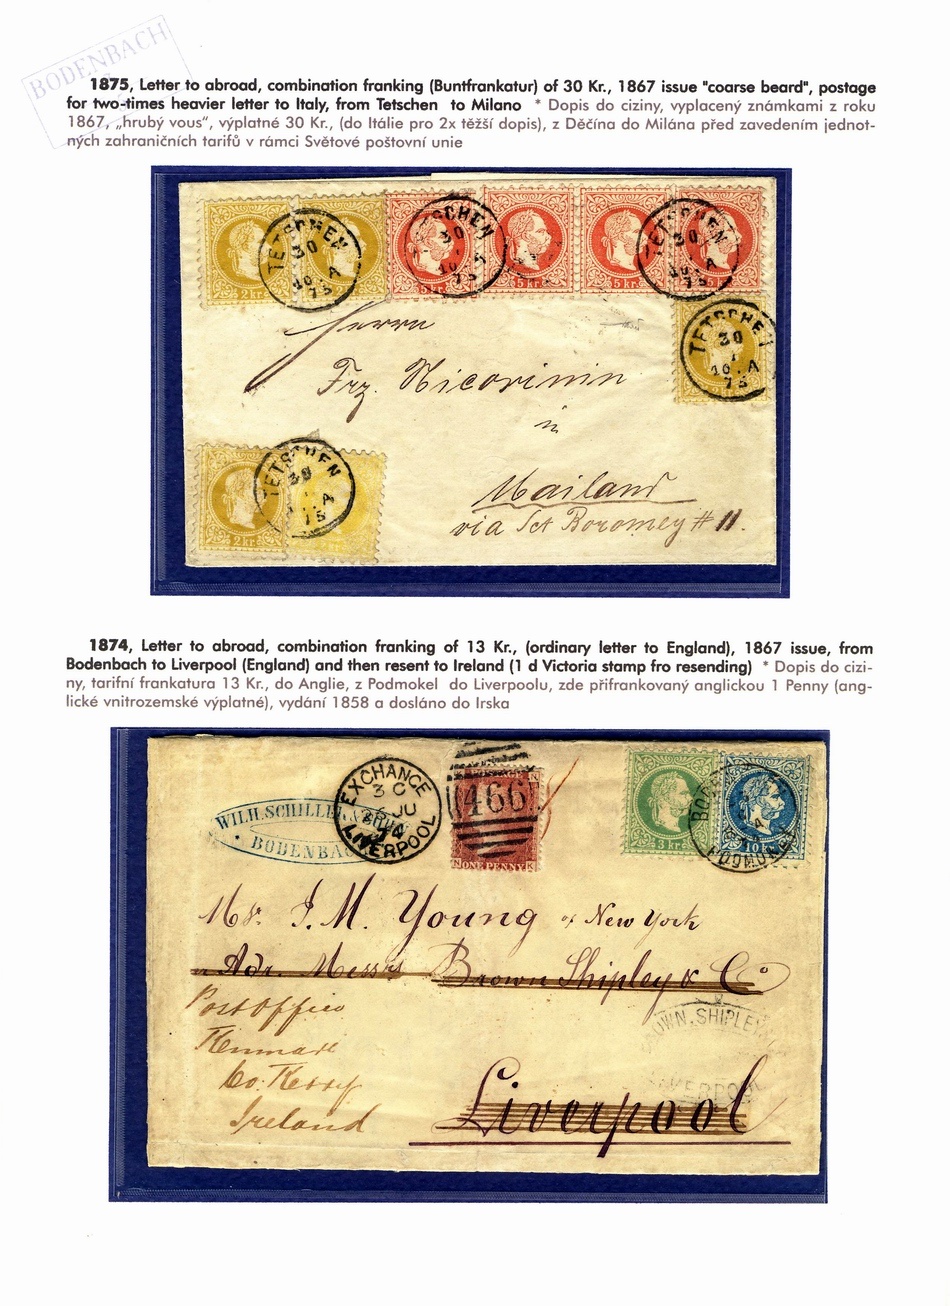 BODENBACH
1875, Letter to abroad, combination franking (Buntfrankatur) of 30 Kr., 1867 issue "coarse beard", postage
for two-times heavier letter to Italy, from Tetschen to Milano * Dopis do ciziny, vyplacený známkami z roku
1867, „hrubý vous“, výplatné 30 Kr., (do Itálie pro 2x těžší dopis), z Děčína do Milána před zavedením jednot-
ných zahraničních tarifů v rámci Světové poštovní unie
2 kr
5 kr
5 kr.
TETSCHEN 30 10 A 75
TETSCHEN 30 10 A 75
TETSCHEN 30 10 A 75
Herrn
TETSCHEN 30 10 A 75
2 kr.
Frz.
in
TETSCHEN 30 A 75
2 kr.
Mailand
via Sct Boromey # 11.
1874, Letter to abroad, combination franking of 13 Kr., (ordinary letter to England), 1867 issue, from
Bodenbach to Liverpool (England) and then resent to Ireland (1 d Victoria stamp fro resending) * Dopis do cizi-
ny, tarifní frankatura 13 Kr., do Anglie, z Podmokel do Liverpoolu, zde přifrankovaný anglickou 1 Penny (ang-
lické vnitrozemské výplatné), vydání 1858 a dosláno do Irska
EXCHANGE
3 C
JU
74
LIVERPOOL
466
K N
N ONE PENNY K
3 kr.
10 kr.
WILH. SCHILLER
BODENBACH
Mr. J. M. Young of New York
Adr. Messrs Brown Shipley & Co
Post Office
OWN. SHIPLEY
Kenmare
Co. Kerry
Liverpool
Ireland